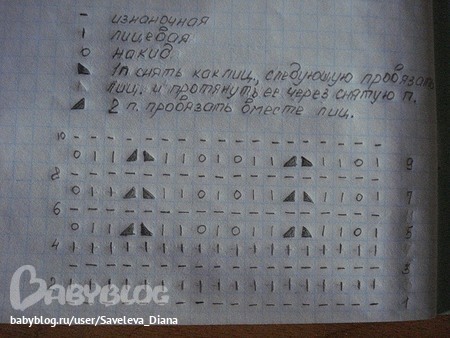 – изнаночная
I лицевая
O накид
◣ 1п снять как лиц., следующую провязать
лиц. и протянуть ее через снятую п.
◢ 2 п. провязать вместе лиц.
10 – – – – – – – – – – – – – – – – – –
O I I ◢ ◣ I I O I O I I ◢ ◣ I I O I 9
8 – – – – – – – – – – – – – – – – – –
O I I ◢ ◣ I I O I O I I ◢ ◣ I I O I 7
6 – – – – – – – – – – – – – – – – – –
O I I ◢ ◣ I I O I O I I ◢ ◣ I I O I 5
4 I I I I I I I I I I I I I I I I I I
– – – – – – – – – – – – – – – – – – 3
2 I I I I I I I I I I I I I I I I I I
– – – – – – – – – – – – – – – – – – 1
BABYBLOG
babyblog.ru/user/Saveleva_Diana